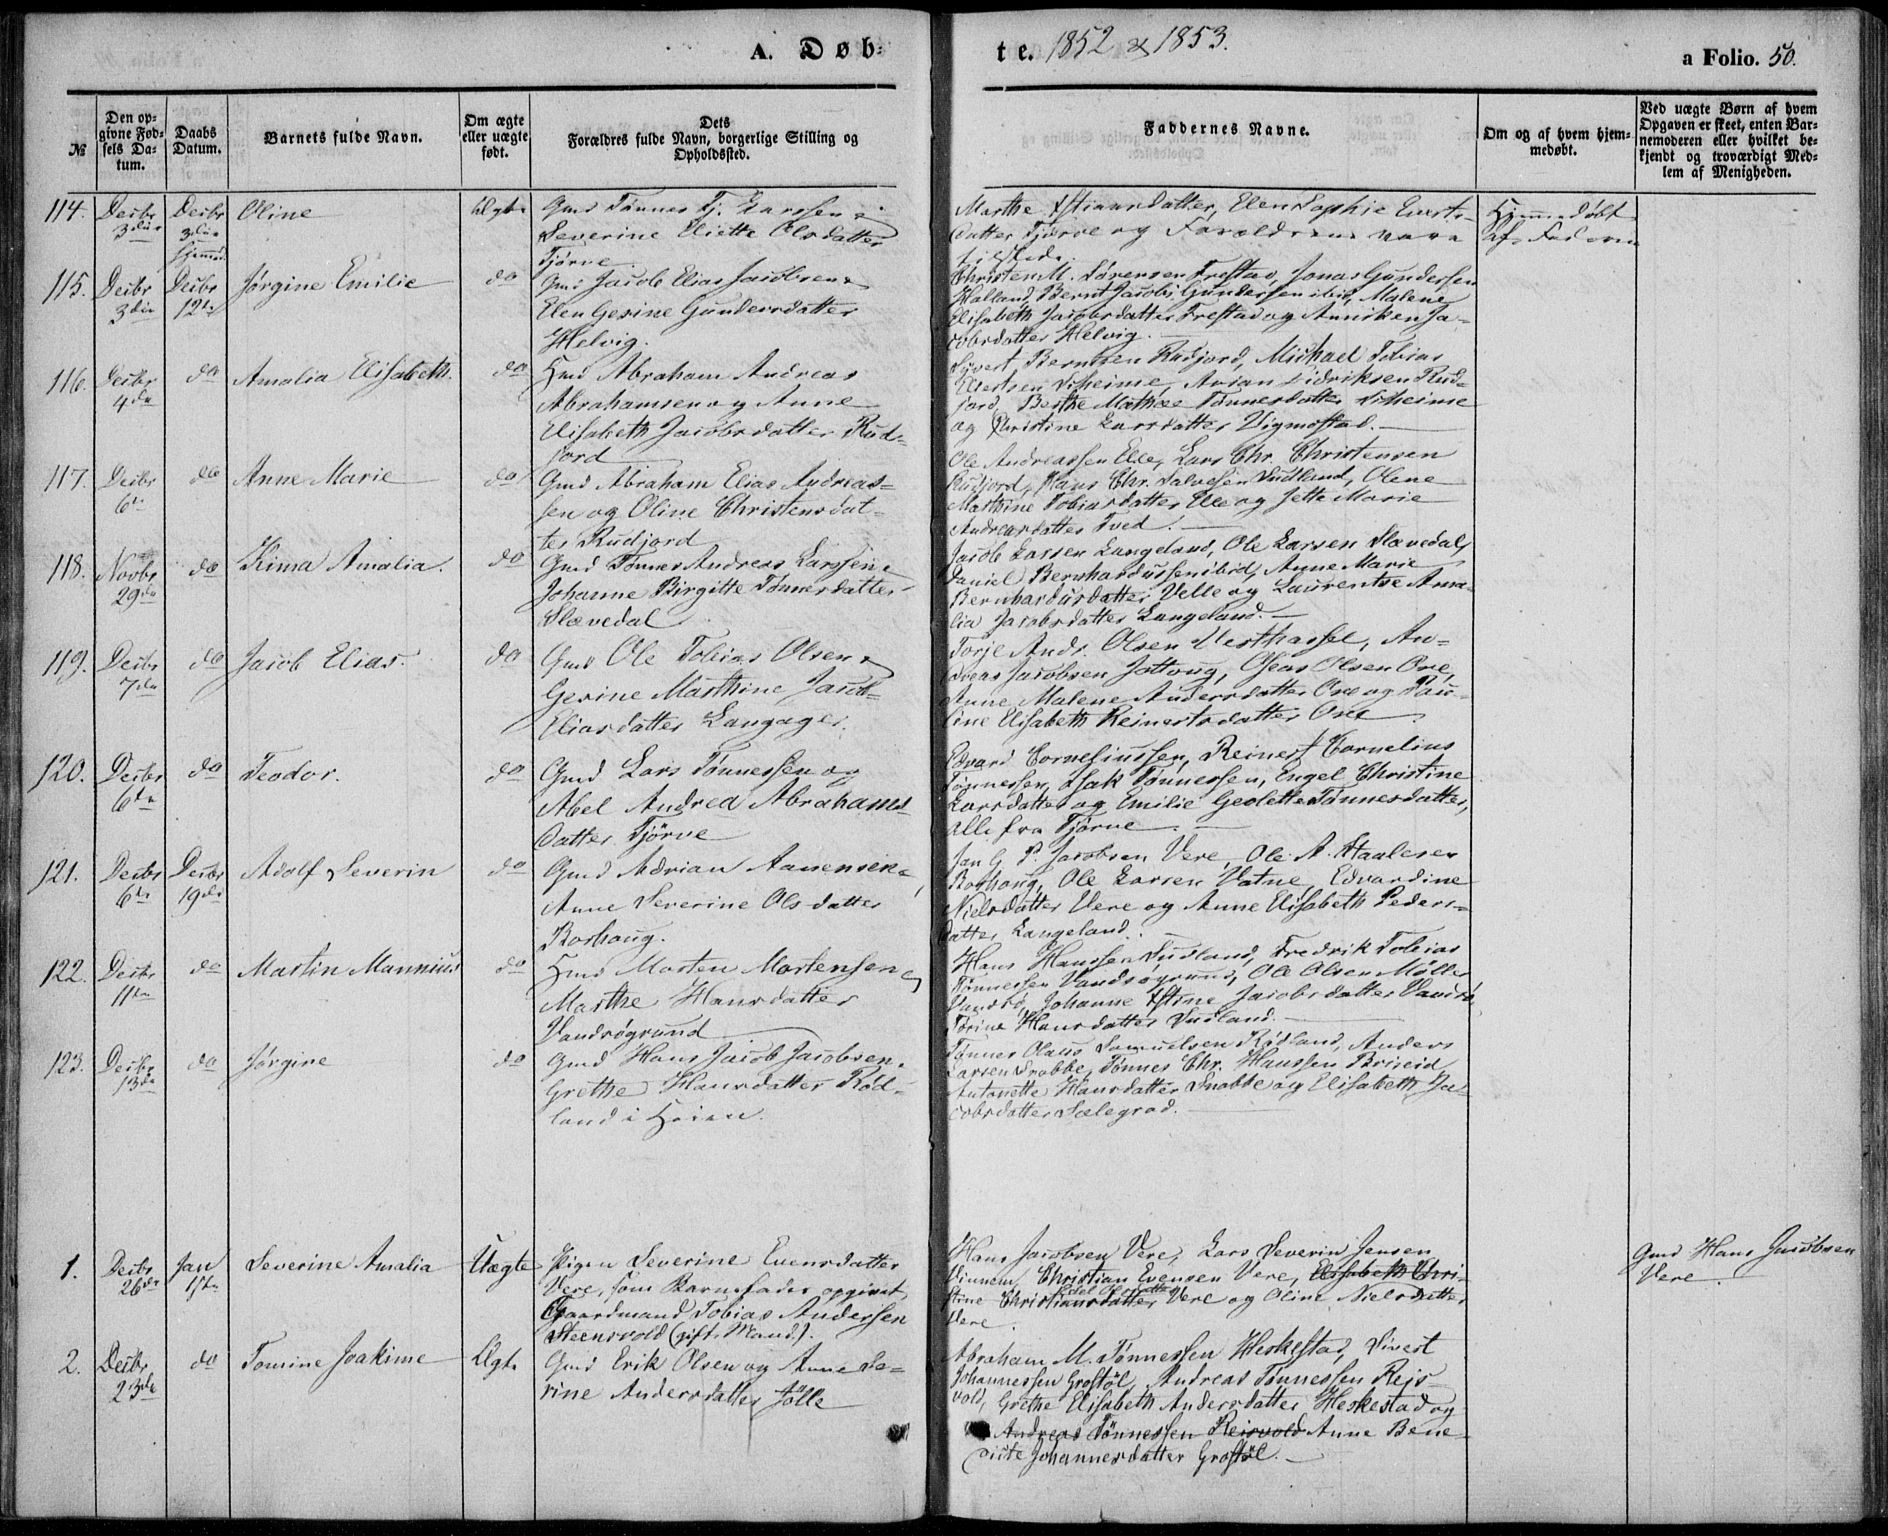 A. Døb-
te. 1852 & 1853.
a Folio. 50.
№
Den op-
givne Fød-
sels Da-
tum.
Daabs
Datum.
Barnets fulde Navn.
Om ægte
eller uægte
født.
Dets
Forældres fulde Navn, borgerlige Stilling og
Opholdssted.
Faddernes Navne.
Om og af hvem hjem-
medøbt.
Ved uægte Børn af hvem
Opgaven er skeet, enten Bar-
nemoderen eller hvilket be-
kjendt og troværdigt Med-
lem af Menigheden.
114. Decbr 3die
Decbr 3die hjemmed.
Oline
Ægte
Gmd Tønnes Tj. Larssen &
Severine Eliette Olsdatter
Tjörve.
Marthe Stiansdatter, Elen Sophie Everts-
datter Tjørve og Forældrene vare
tilstede.
Hjemmedöbt
af Faderen
115. Decbr 3die
Decbr 12te
Jørgine Emilie
do
Gmd Jacob Elias Jacobsen &
Elen Gesine Gundersdatter
Helvig.
Christen M. Sørensen Frestad, Jonas Gundersen
Halland, Bernt Jacob Gundersen ibid, Malene
Elisabeth Jacobsdatter Frestad og Anniken Ja-
cobsdatter Helvig.
116. Decbr 4de
do
Amalia Elisabeth.
do
Hmd Abraham Andreas
Abrahamsen og Anne
Elisabeth Jacobsdatter Rud-
jord
Syvert Berntsen Rudjord, Michael Tobias
Elertsen Skeime, Arian Didriksen Rud-
jord, Berthe Mathea Tønnesdatter Skeime
og Christine Larsdatter Vigmostad.
117. Decbr 6te
do
Anne Marie
do
Gmd Abraham Elias Andreas-
sen og Oline Christensdat-
ter Rudjord
Ole Andreassen Elle, Lars Chr. Christensen
Rudjord, Hans Chr. Salvesen Sudland, Olene
Marthine Tobiasdatter Elle og Jette Marie
Andreasdatter Tved.
118. Novbr 29de
do
Kima Amalia.
do
Gmd Tønnes Andreas Larssen &
Johanne Birgitte Tønnesdatter
Slævedal
Jacob Larsen Langeland, Ole Larsen Slævedal,
Daniel Bernhardussen ibid, Anne Marie
Bernhardusdatter Velle og Laurentse Ama-
lia Jacobsdatter Langeland.
119. Decbr 7de
do
Jacob Elias.
do
Gmd Ole Tobias Olsen &
Gesine Marthine Jacob-
Eliasdatter Langager.
Torje Andr. Olsen Vesthassel, An-
dreas Jacobsen Jottoug, Oseas Olsen Ore,
Anne Malene Andersdatter Ore og Pau-
line Elisabeth Reinertsdatter Ore
120. Decbr 6te
do
Teodor.
do
Gmd Lars Tønnessen og
Abel Andrea Abrahams-
datter Tjörve
Edvard Corneliussen, Reinert Cornelius
Tønnessen, Isak Tønnessen, Engel Christine
Larsdatter og Emilie Geolette Tønnesdatter,
alle fra Tjörve.
121. Decbr 6te
Decbr 19de
Adolf Severin
do
Gmd Adrian Aanensen &
Anne Severine Olsdatter
Borhaug.
Jan G. P. Jacobsen Vere, Ole A. Staalesen
Borhaug, Ole Larsen Vatne, Edvardine
Nielsdatter Vere og Anne Elisabeth Peders-
datter Langeland.
122. Decbr 11te
do
Martin Mannius
do
Hmd Morten Mortensen og
Marthe Hansdatter
Vandsøgrund
Hans Hanssen Sudland, Fredrik Tobias
Tønnessen Vandsøgrund, Ole Olsen Møller
Vandsø, Johanne Stine Jacobsdatter Vandsø,
Torine Hansdatter Sudland.
123. Decbr 13de
do
Jørgine
do
Gmd Hans Jacob Jacobsen &
Grethe Hansdatter Röd-
land i Heien.
Tønnes Olaus Samuelsen Rödland, Anders
Larsen Snobbe, Tønnes Chr. Hanssen Briseid
Antonette Hansdatter Snobbe og Elisabeth Ja-
cobsdatter Sælegrad.
1. Decbr 26de
Jan 1ste
Severine Amalia
Uægte
Pigen Severine Evensdatter
Vere, som Barnefader opgivet
Gaardmand Tobias Andersen
Steensvold (gift Mand).
Hans Jacobsen Vere, Lars Severin Jensen
Vinnem, Christian Evensen Vere, Elisabeth Chri-
stine Christiansdatter Vere og Oline Nielsdatter
Vere.
Gmd Hans Jacobsen
Vere.
2. Decbr 23de
do
Tomine Joakime
Ægte
Gmd Erik Olsen og Anne Se-
rine Andersdatter Jölle
Abraham M. Tønnessen Heskestad, Sivert
Johannessen Grostöl, Andreas Tønnessen Reis-
vold, Grethe Elisabeth Andersdatter Heskestad og
Andreas Tønnessen Reisvold Anne Bene-
dicte Johannesdatter Grostöl.